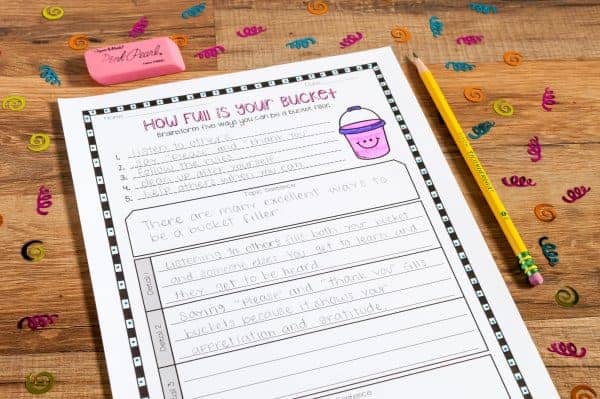 Pink Pearl
Name
How Full is Your Bucket
Brainstorm five ways you can be a bucket filler.
1. Listen to others
2. Say "Please" and "Thank you"
3.
4. Clean up after yourself
5. Help others when you can
Topic Sentence
There are many excellent ways to
be a bucket filler.
Detail 1
Listening to others fills both your bucket
and someone elses. You get to learn and
they get to be heard.
Detail 2
Saying "Please" and "Thank you" fills
buckets because it shows your
appretiation and gratitude.
Detail 3
Sentence